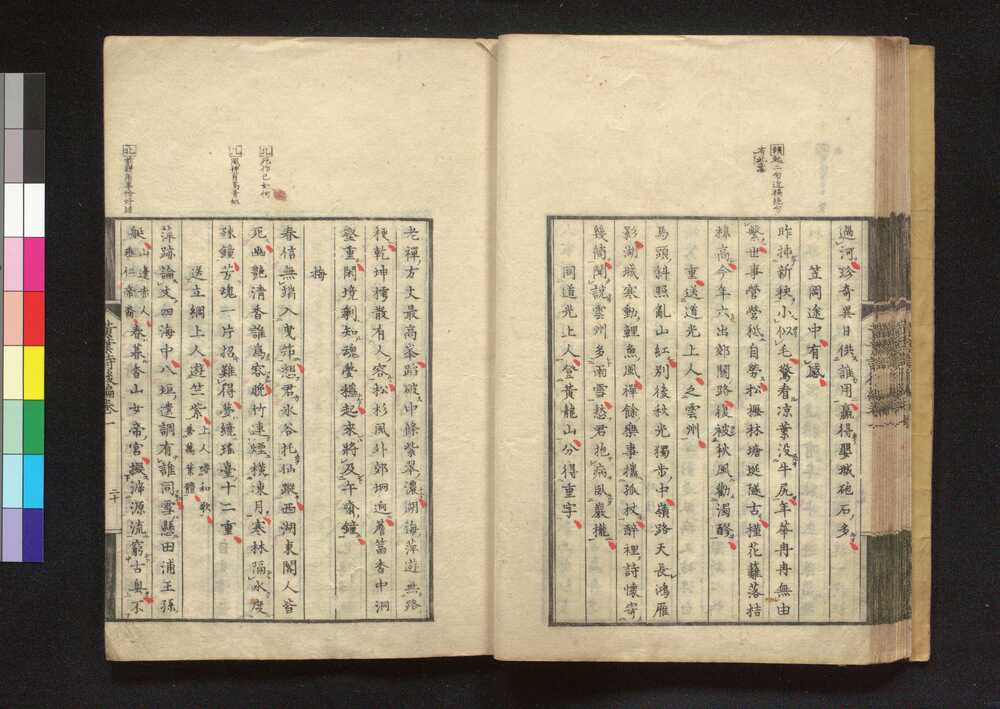 過河珍奇異日供誰用贏得墾城砲石多
笠岡途中有感
昨挿新秧小似毛驚看凉葉没牛尻年華冉冉無由
繫世事營營秪自勞松櫪林塘埏隧古槿花籬落桔
槹高今年六出郊關路復被秋風勸濁醪
重送道光上人之雲州
馬頭斜照亂山紅別後秋光獨步中嶺路天長鴻雁
影湖城寒動鯉魚風禪餘樂事攜孤杖醉裡詩懷寄
幾筒聞說雲州多雨雪愁君抱病臥巖攏
同道光上人登黃龍山分得重字
老禪方丈最高峯蹈破中條紫翠濃湖海萍遊無路
梗乾坤樗散有人容松杉風外郊坰迥薝蔔香中洞
壑重閑境剩知魂夢穩起來將及午齋鐘
梅
春信無端入曳筇想君氷谷托仙蹤西湖東閣人皆
死幽艷清香誰爲容晩竹連煙橫凍月寒林隔水度
疎鐘芳魂一片招難得夢繞瑤臺十二重
送立綱上人遊竺紫
上人善和歌
善萬葉體
萍跡論文四海中八垣遺調有誰同雲懸田浦王孫
山邊赤人
春暮香山女帝宮
源流窮古奧不